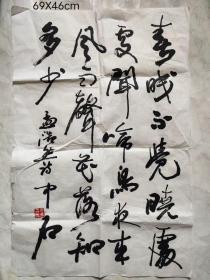 69X46cm
春眠不覺曉處
處聞啼鳥夜来
風雨聲花落知
多少 孟浩然詩 中石